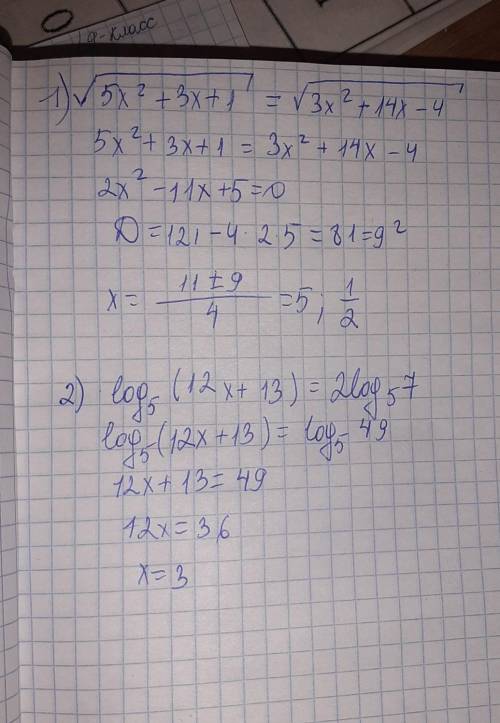 9-класс
1) √(5x² + 3x + 1) = √(3x² + 14x - 4)
5x² + 3x + 1 = 3x² + 14x - 4
2x² - 11x + 5 = 0
D = 121 - 4 · 2 · 5 = 81 = 9²
x = (11 ± 9)/4 = 5; 1/2
2) log₅(12x + 13) = 2log₅7
log₅(12x + 13) = log₅49
12x + 13 = 49
12x = 36
x = 3